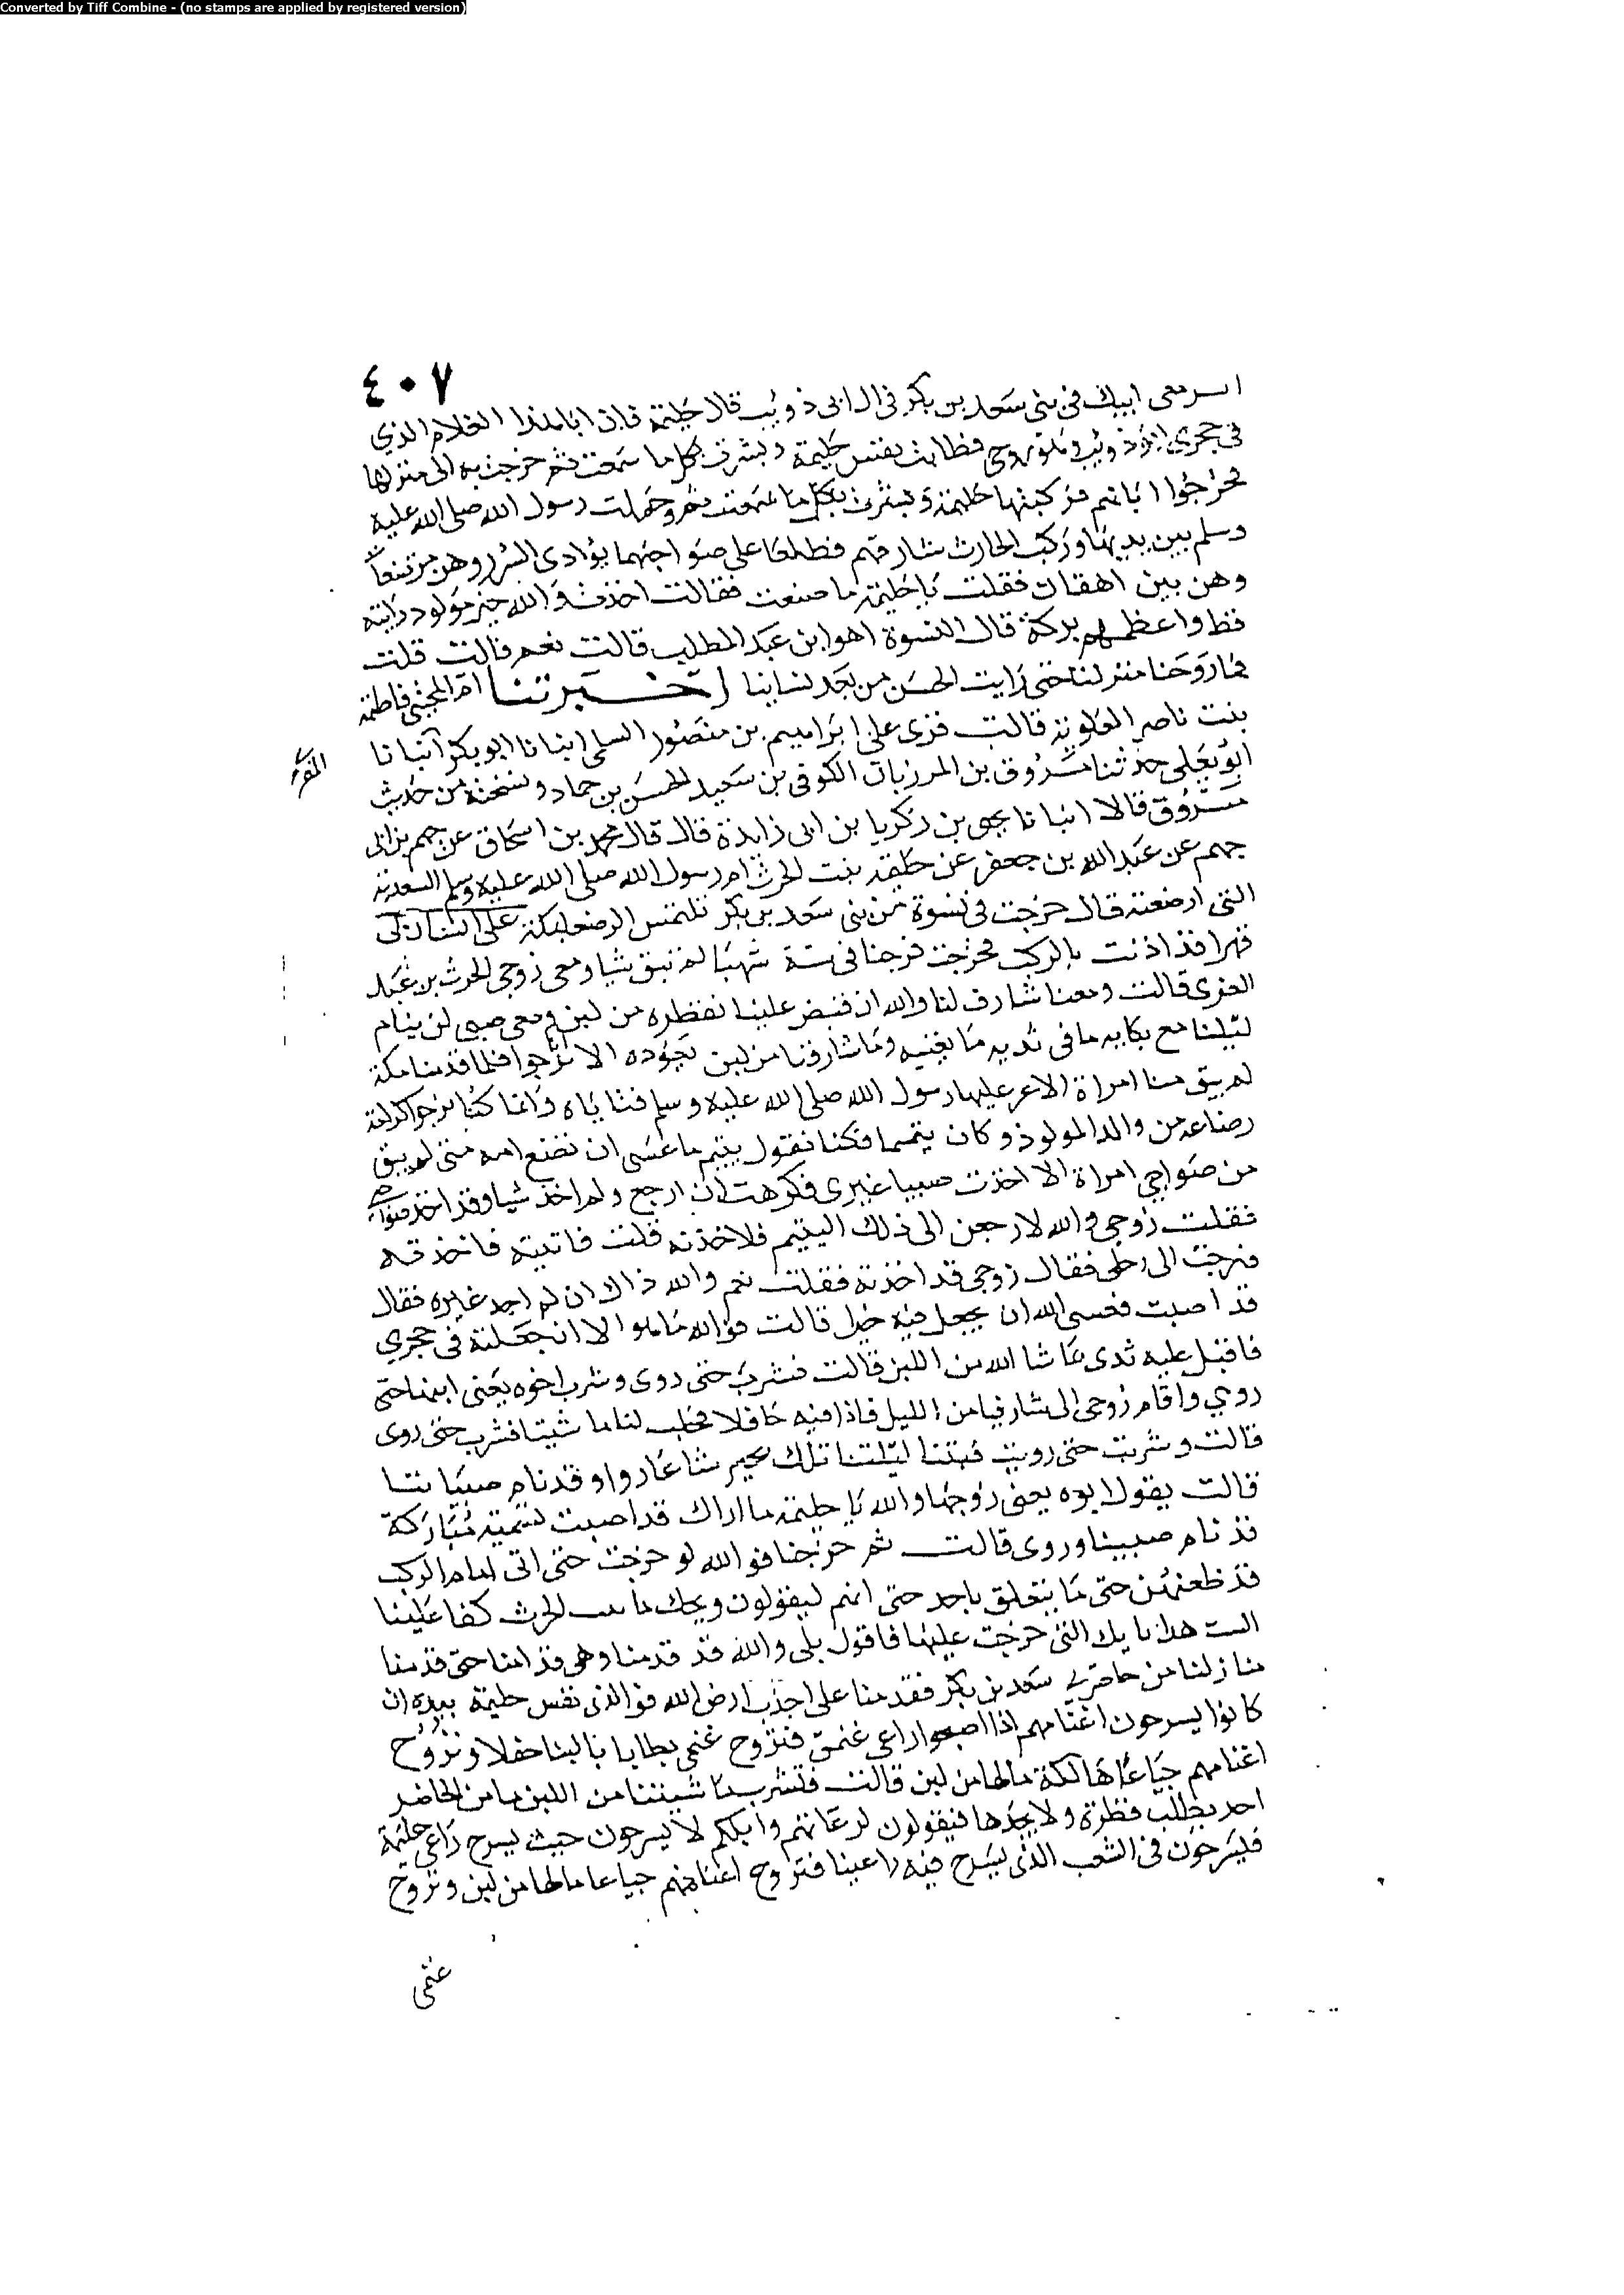 Converted by Tiff Combine - (no stamps are applied by registered version)
٤٠٧
ابيك في بني سعد بن بكر في ال ابي ذويب قال حليمة فان ابا هذا الغلام الذي
في حجري ابو ذويب وهو زوجي فطابت نفس حليمة وبشرت بكل ما سمعت ثم خرجت به الى منزلها
فركبتها حليمة وبشرت بكل ما سمعت وحملت رسول الله صلى الله عليه
وسلم بين يديها وركب الحارث شارفهم فطلعا على صواحبهما بوادى السرر وهن مرتعات
وهن بين فقلت يا حليمة ما صنعت فقالت اخذت والله خير مولود رايته
قط واعظمهم بركة قال النسوة اهو ابن عبد المطلب قالت نعم قالت قلت
فما روحنا منزلنا حتى رايت الحسد من بعد نساينا اخبرتنا ام المجتبى فاطمة
بنت ناصر العلوية قالت قرى على ابراهيم بن منصور السلمي انبانا ابو بكر انبانا
المقرى
ابو يعلى حدثنا مسروق بن المرزبان الكوفي بن سعيد الحسن بن حماد ونسخته من حديث
مسروق قالا انبانا يحيى بن زكريا بن ابي زايدة قال قال محمد بن اسحاق عن جهم بن ابى
جهم عن عبد الله بن جعفر عن حليمة بنت الحرث ام رسول الله صلى الله عليه وسلم السعدية
التي ارضعته قال خرجت في نسوة من بني سعد بن بكر نلتمس الرضعا بمكة على اتان لى
قمرا قد اذنت بالركب فخرجت فرجنا في سنة شهبا لم تبق شيا ومعى زوجي الحرث بن عبد
العزى قالت ومعنا شارف لنا والله ان تبض علينا بقطرة من لبن ومعى صبى لن ينام
ليلنا مع بكايه ما في ثديه ما يغنيه وما شارفنا من لبن نجوده الا نرجوا فلما قدمنا مكة
لم يبق منا امراة الا عر عليها رسول الله صلى الله عليه وسلم فتاباه وانما كنا نرجوا كرامة
رضاعه من والد المولود وكان يتيما فكنا نقول يتيم ما عسى ان تصنع امه حتى لم يبق
من صواحبي امراة الا اخذت صبيا غيرى فكرهت ان ارجع ولم اخذ شيا وقد اخذ صواحبي
فقلت زوجى والله لارجعن الى ذلك اليتيم فلاخذنه قلت فاتيته فاخذته
فرجت الى رحلى فقال زوجى قد اخذته فقلت نعم والله ذاك ان لم اجد غيره فقال
قد اصبت فعسى الله ان يجعل فيه خيرا قالت فوالله ما هو الا ان جعلته في حجري
فاقبل عليه ثدى بما شا الله من اللبن قالت فشرب حتى روى وشرب اخوه يعني ابنها حتى
روي واقام زوجى الى شارفنا من الليل فاذا فيه حافلا فحلب لنا ما شينا فشرب حتى روى
قالت وشربت حتى رويت فبتنا ليلتنا تلك بخير شباعا روا وقد نام صبياننا
قالت يقول ابوه يعنى زوجها والله يا حليمة ما اراك قد اصبت نسمة مباركة
قد نام صبينا وروى قالت ثم خرجنا فوالله لو خرجت حتى اتى امام الركب
قد حتى ما يتعلق باحد حتى انهم ليقولون ويحك الحرث كفا علينا
الست هذا بابك التى خرجت عليها فاقول بلى والله قد قدمنا وهى قدامنا حتى قدمنا
منازلنا من حاضر سعد بن بكر فقدمنا على اجدب ارض الله فوالذى نفس حليمة بيده ان
كانوا ليسرحون اغنامهم اذا اصبحوا راعى غنمى فتروح غنمى بطانا لبنا حفلا وتروح
اغنامهم جياعا هالكة مالها من لبن قالت فتشرب ما شينا من اللبن ما من الحاضر
احد يطلب قطرة ولا يجدها فيقولون لرعاتهم ويلكم لا يسرحون حيث يسرح راعي حليمة
فيسرحون في الشعب الذى يسرح فيه راعينا فتروح اغنامهم جياعا مالها من لبن وتروح
غنمى